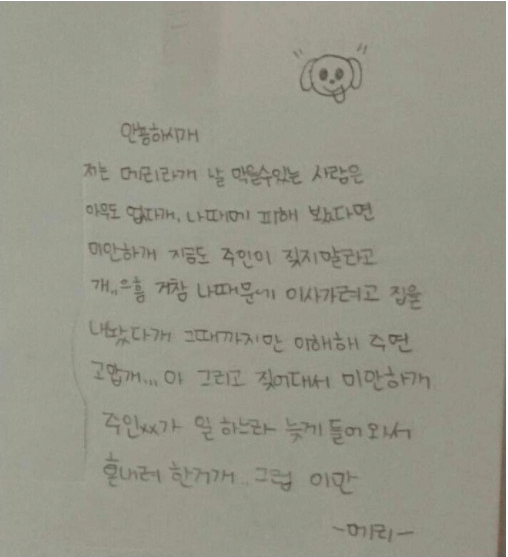 안뇽하시개
저는 메리라개 날 막을수있는 사람은
아무도 업다개, 나때메 피해 봤다면
미안하개 지금도 주인이 짖지말라고
개,,으흠 거참 나때문에 이사가려고 집을
내놨다개 그때까지만 이해해 주면
고맙개,,, 아 그리고 짖어대서 미안하개
주인xx가 일 하느라 늦게 들어와서
혼내려 한거개.. 그럼 이만
-메리-